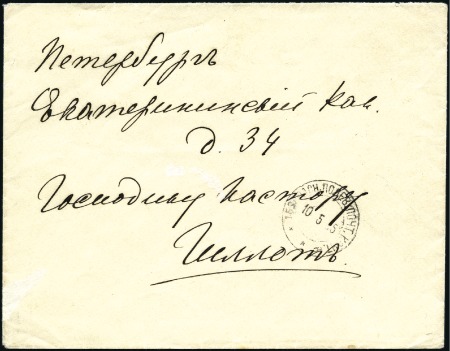 Петербургъ
Екатерининскій Кан.
д. 34
Господину Пастору
Гиллотъ
10 5